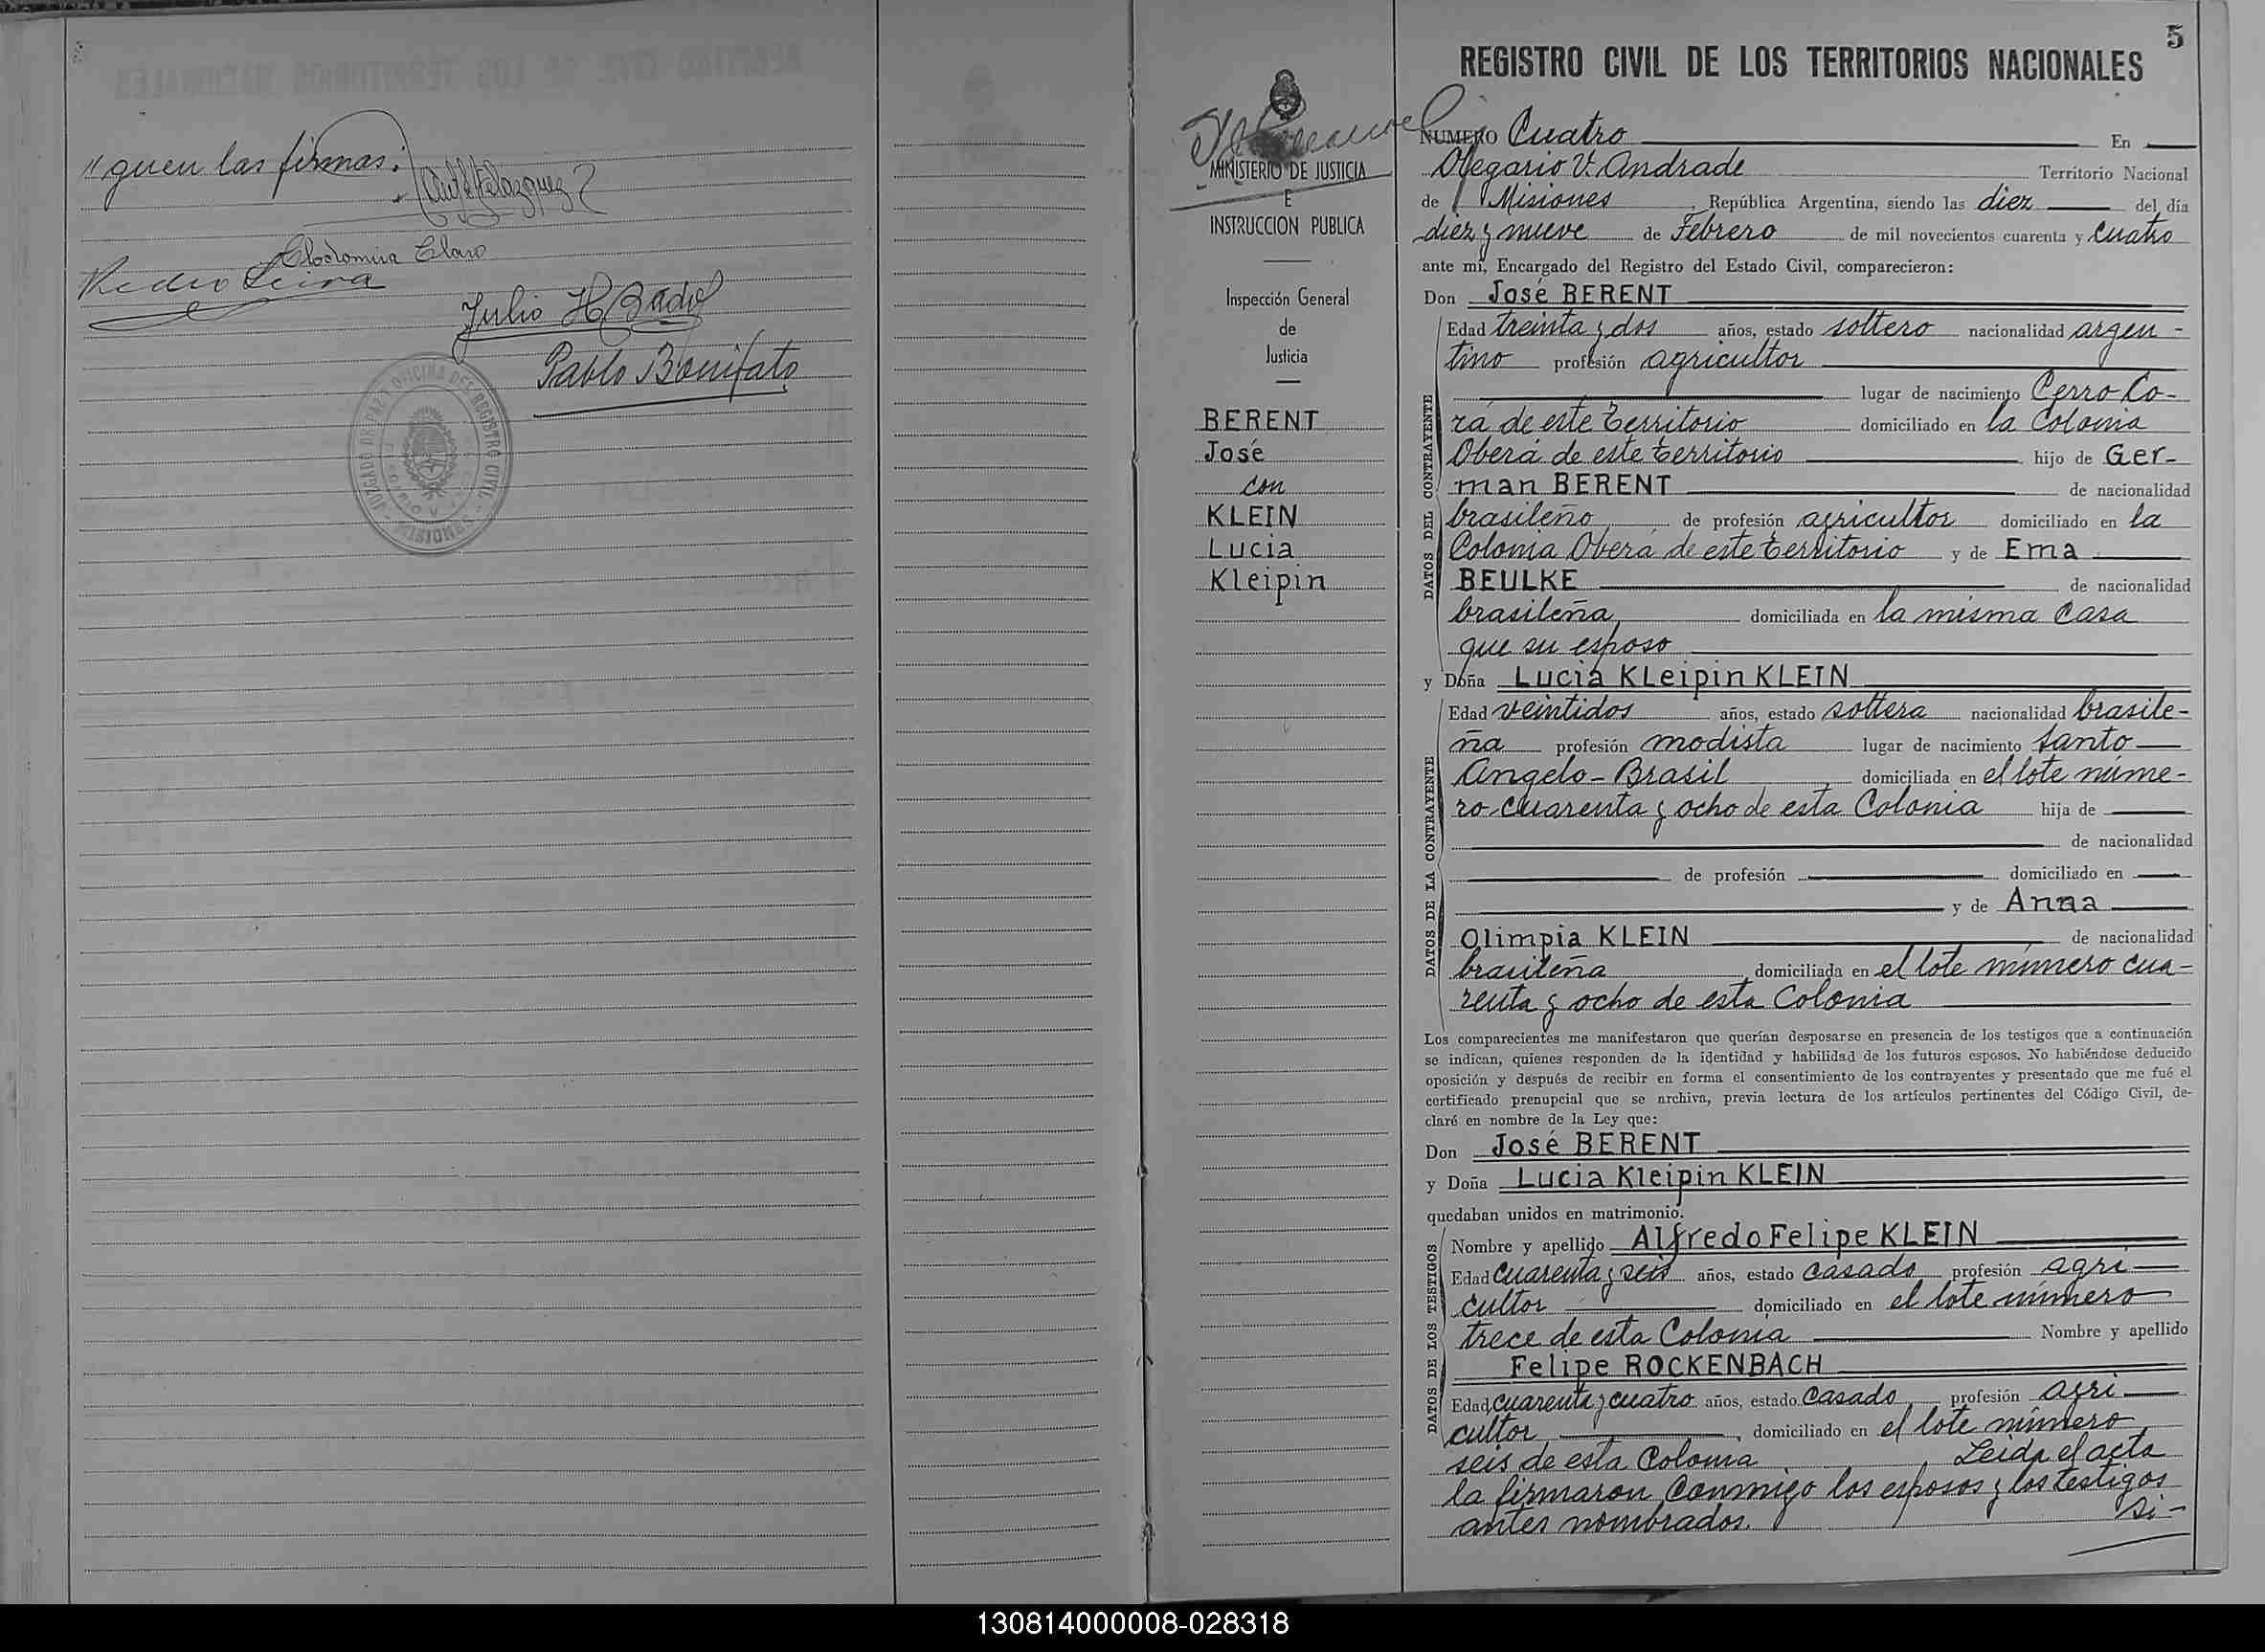 "guen las firmas:
Clodomira Claro
Pedro Leiva
Julio H Bado
Pablo Bonifato
JUZGADO DE PAZ Y OFICINA DEL REGISTRO CIVIL
MISIONES
5
REGISTRO CIVIL DE LOS TERRITORIOS NACIONALES
MINISTERIO DE JUSTICIA
E
INSTRUCCION PUBLICA
Inspección General
de
Justicia
BERENT
José
con
KLEIN
Lucia
Kleipin
NUMERO Cuatro En
Olegario V. Andrade Territorio Nacional
de Misiones, República Argentina, siendo las diez del día
diez y nueve de Febrero de mil novecientos cuarenta y cuatro
ante mí, Encargado del Registro del Estado Civil, comparecieron:
Don José BERENT
DATOS DEL CONTRAYENTE
Edad treinta y dos años, estado soltero nacionalidad argen-
tino profesión agricultor
lugar de nacimiento Cerro Co-
rá de este territorio domiciliado en la Colonia
Oberá de este territorio hijo de Ger-
man BERENT de nacionalidad
brasileño de profesión agricultor domiciliado en la
Colonia Oberá de este territorio y de Ema
BEULKE de nacionalidad
brasileña, domiciliada en la misma casa
que su esposo
y Doña Lucia KLeipin KLEIN
DATOS DE LA CONTRAYENTE
Edad veintidos años, estado soltera nacionalidad brasile-
ña profesión modista lugar de nacimiento Santo
Angelo - Brasil domiciliada en el lote núme-
ro cuarenta y ocho de esta Colonia hija de
de nacionalidad
de profesión domiciliado en
y de Anna
Olimpia KLEIN de nacionalidad
brasileña, domiciliada en el lote número cua-
renta y ocho de esta Colonia
Los comparecientes me manifestaron que querían desposarse en presencia de los testigos que a continuación
se indican, quienes responden de la identidad y habilidad de los futuros esposos. No habiéndose deducido
oposición y después de recibir en forma el consentimiento de los contrayentes y presentado que me fué el
certificado prenupcial que se archiva, previa lectura de los artículos pertinentes del Código Civil, de-
claré en nombre de la Ley que:
Don José BERENT
y Doña Lucia Kleipin KLEIN
quedaban unidos en matrimonio.
DATOS DE LOS TESTIGOS
Nombre y apellido Alfredo Felipe KLEIN
Edad cuarenta y seis años, estado casado profesión agri
cultor domiciliado en el lote número
trece de esta Colonia Nombre y apellido
Felipe ROCKENBACH
Edad cuarenta y cuatro años, estado casado profesión agri
cultor, domiciliado en el lote número
seis de esta Colonia Leida el acta
la firmaron conmigo los esposos y los testigos
antes nombrados. Si-
130814000008-028318